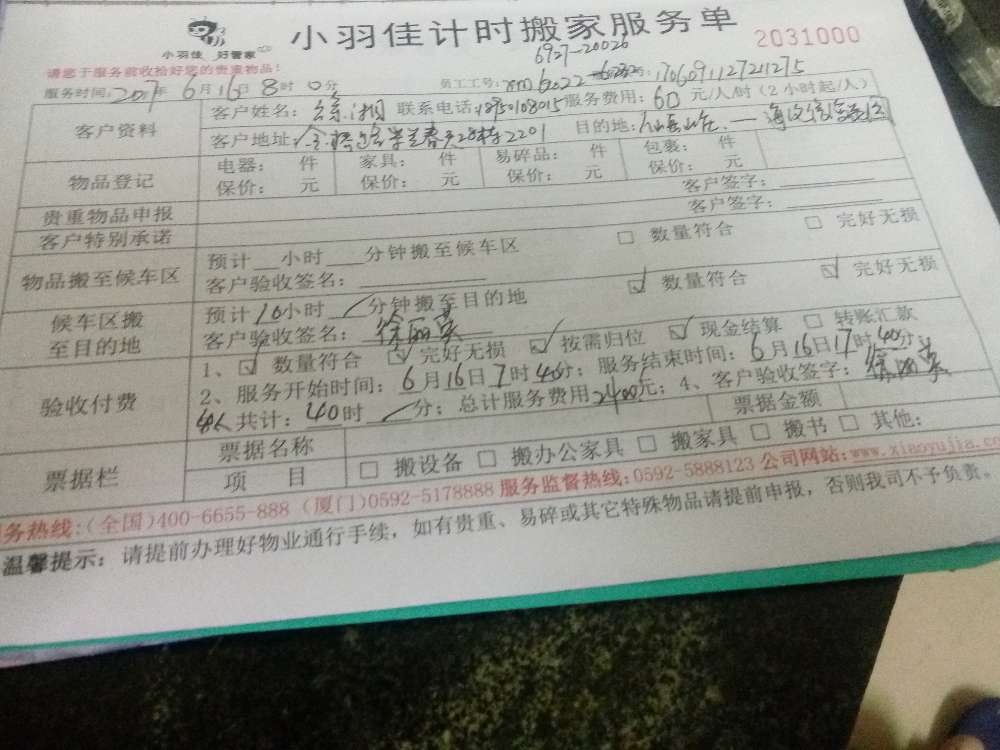 小羽佳计时搬家服务单
小羽佳 好管家
2031000
6927-20026
请您于服务前收拾好您的贵重物品!
服务时间: 年 6月16日8时0分 员工工号: 1706091127211275
客户资料 客户姓名: 联系电话:18750108015 服务费用:60 元/人/时(2小时起/人)
客户地址: 28栋2201 目的地:
物品登记 电器: 件 家具: 件 易碎品: 件 包裹: 件
保价: 元 保价: 元 保价: 元 保价: 元
贵重物品申报 客户签字:
客户特别承诺 客户签字:
物品搬至候车区 预计 小时 分钟搬至候车区 □ 数量符合 □ 完好无损
客户验收签名:
候车区搬至目的地 预计10小时 分钟搬至目的地 ☑ 数量符合 ☑ 完好无损
客户验收签名:徐丽英
验收付费 1、☑ 数量符合 ☑ 完好无损 ☑ 按需归位 ☑ 现金结算 □ 转账汇款
2、服务开始时间:6月16日7时40分;服务结束时间:6月16日17时40分
4人共计:40时 分;总计服务费用2400元;4、客户验收签字:徐丽英
票据栏 票据名称 票据金额
项 目 □ 搬设备 □ 搬办公家具 □ 搬家具 □ 搬书 □ 其他:
务热线:(全国)400-6655-888 (厦门)0592-5178888 服务监督热线:0592-5888123 公司网站:www.xiaoyujia.co
温馨提示:请提前办理好物业通行手续,如有贵重、易碎或其它特殊物品请提前申报,否则我司不予负责。